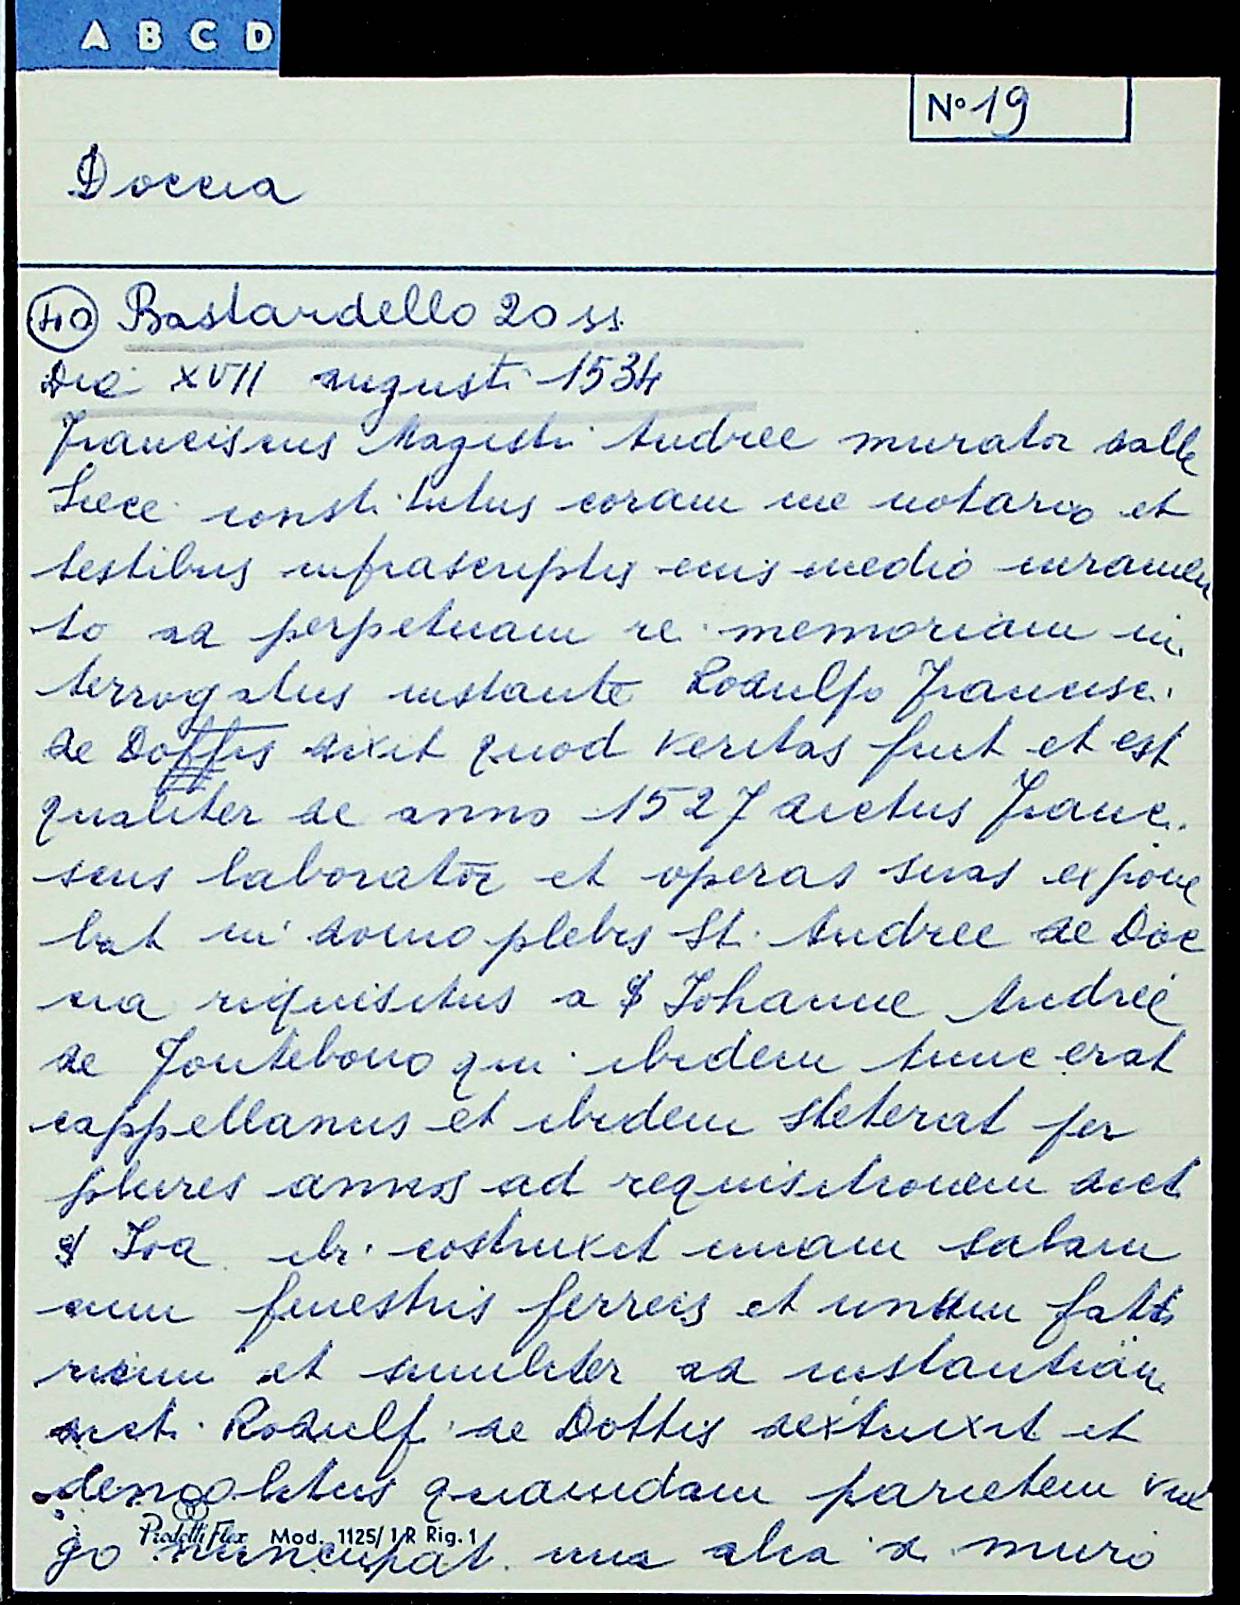 A B C D
N° 19
Doccia
40 Bastardello 20 ss.
Die XVII augusti 1534
Franciscus Magistri Andree murator valle
Sece constitutus coram me notario et
testibus infrascriptis eius medio iuramen
to ad perpetuam rei memoriam in
terrogatus instante Rodulfo Francisci
de Dottis dixit quod veritas fuit et est
qualiter de anno 1527 dictus Franci
scus laborator et operas suas expone
bat in domo plebis St. Andree de Doc
cia requisitus a S Johanne Andree
de Fontebono qui ibidem tunc erat
cappellanus et ibidem steterat per
plures annos ad requisitionem dict
S Joa ibi costruxit unam salam
cum fenestris ferreis et unum
et similiter ad instantiam
dicti Rodulf de Dottis dextruxit et
demolitus quamdam parietem vul
go nuncupat. una alia a muro
Prodotti Flex Mod. 1125/1R Rig. 1